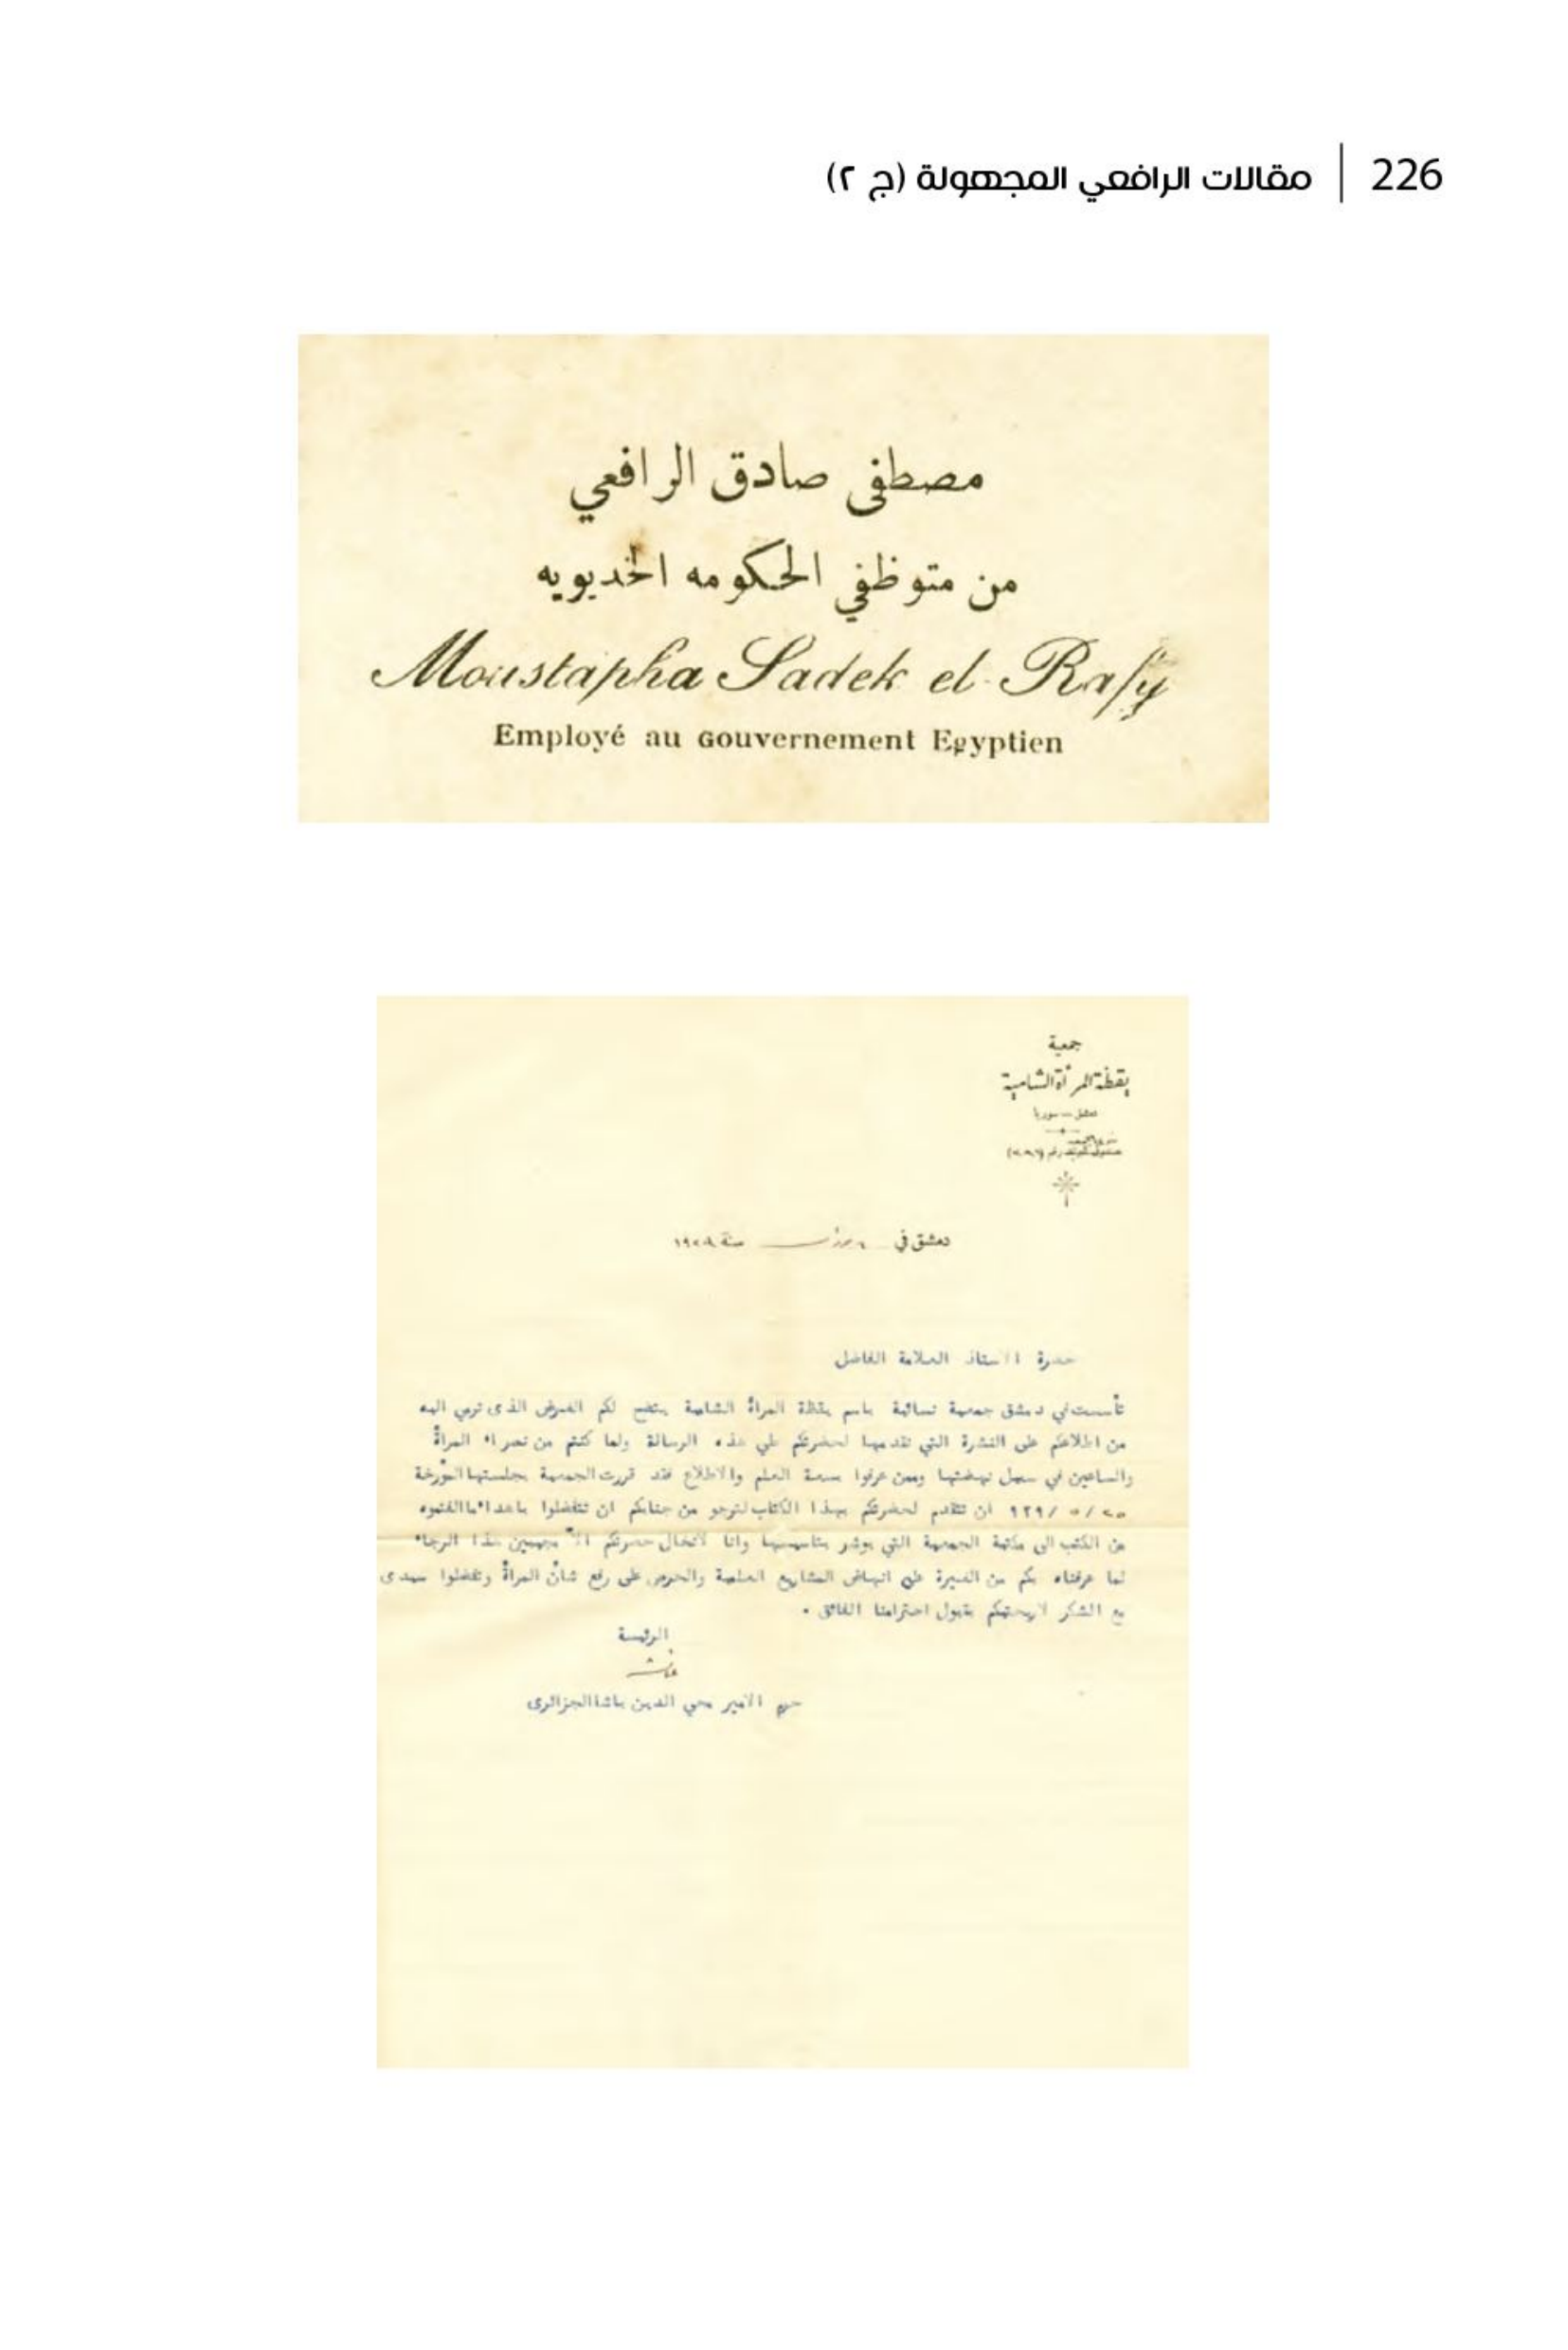 226 | مقالات الرافعي المجهولة (ج ٢)
مصطفى صادق الرافعي
من متوظفي الحكومه الخديويه
Moustapha Sadek el-Rafy
Employé au Gouvernement Egyptien
جمعية
يقظة المرأة الشامية
دمشق — سوريا
دمشق في سنة
حضرة الاستاذ العلامة الفاضل
تأسست في دمشق جمعية نسائية باسم يقظة المرأة الشامية يتضح لكم الغرض الذى ترمي اليه
من اطلاعكم على النشرة التي نقدمها لحضرتكم طي هذه الرسالة ولما كنتم من نصراء المرأة
والساعين في سبيل نهضتها وممن عرفوا بسعة العلم والاطلاع فقد قررت الجمعية بجلستها المؤرخة
٢٥ / ٥ / ٩٢٩ ان تتقدم لحضرتكم بهذا الكتاب لترجو من جنابكم ان تتفضلوا باهداء ما الفتموه
من الكتب الى مكتبة الجمعية التي بوشر بتأسيسها وانا لانخال حضرتكم الاّ مجيبين هذا الرجاء
لما عرفناه بكم من الغيرة على انهاض المشاريع العلمية والحرص على رفع شأن المرأة وتفضلوا سيدى
مع الشكر لاريحيتكم بقبول احترامنا الفائق .
الرئيسة
حرم الامير محي الدين باشا الجزائرى